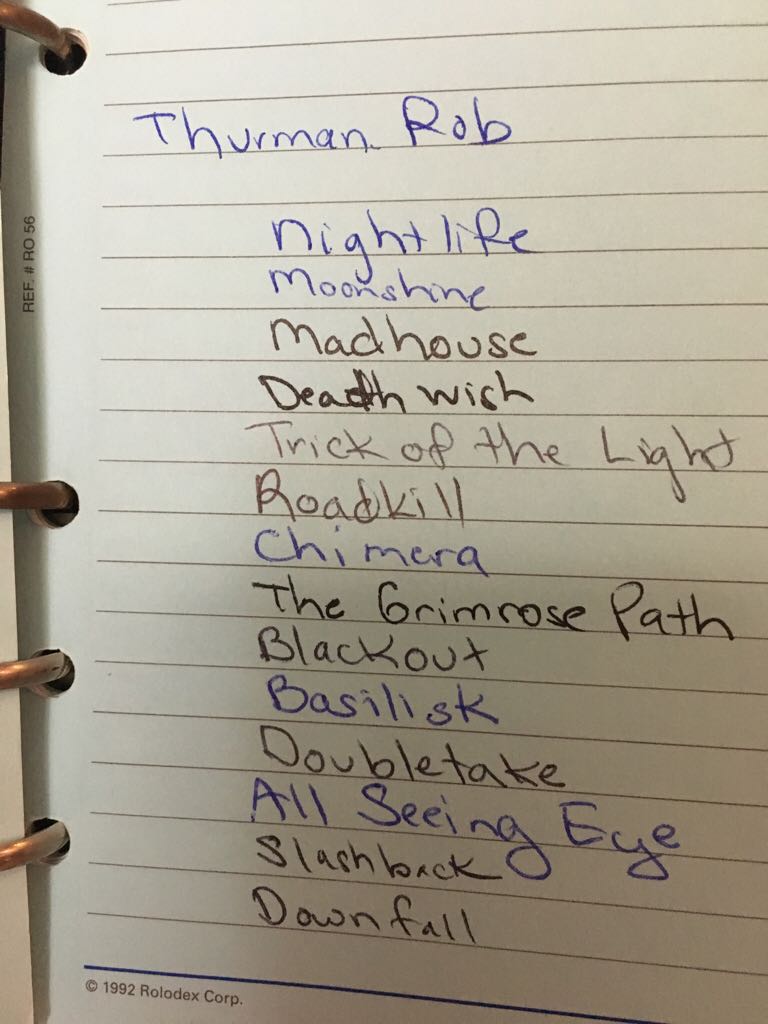 Thurman Rob
REF. # RO 56
Nightlife
Moonshine
Madhouse
Deathwish
Trick of the Light
Roadkill
Chimera
The Grimrose Path
Blackout
Basilisk
Doubletake
All Seeing Eye
Slashback
Downfall
© 1992 Rolodex Corp.